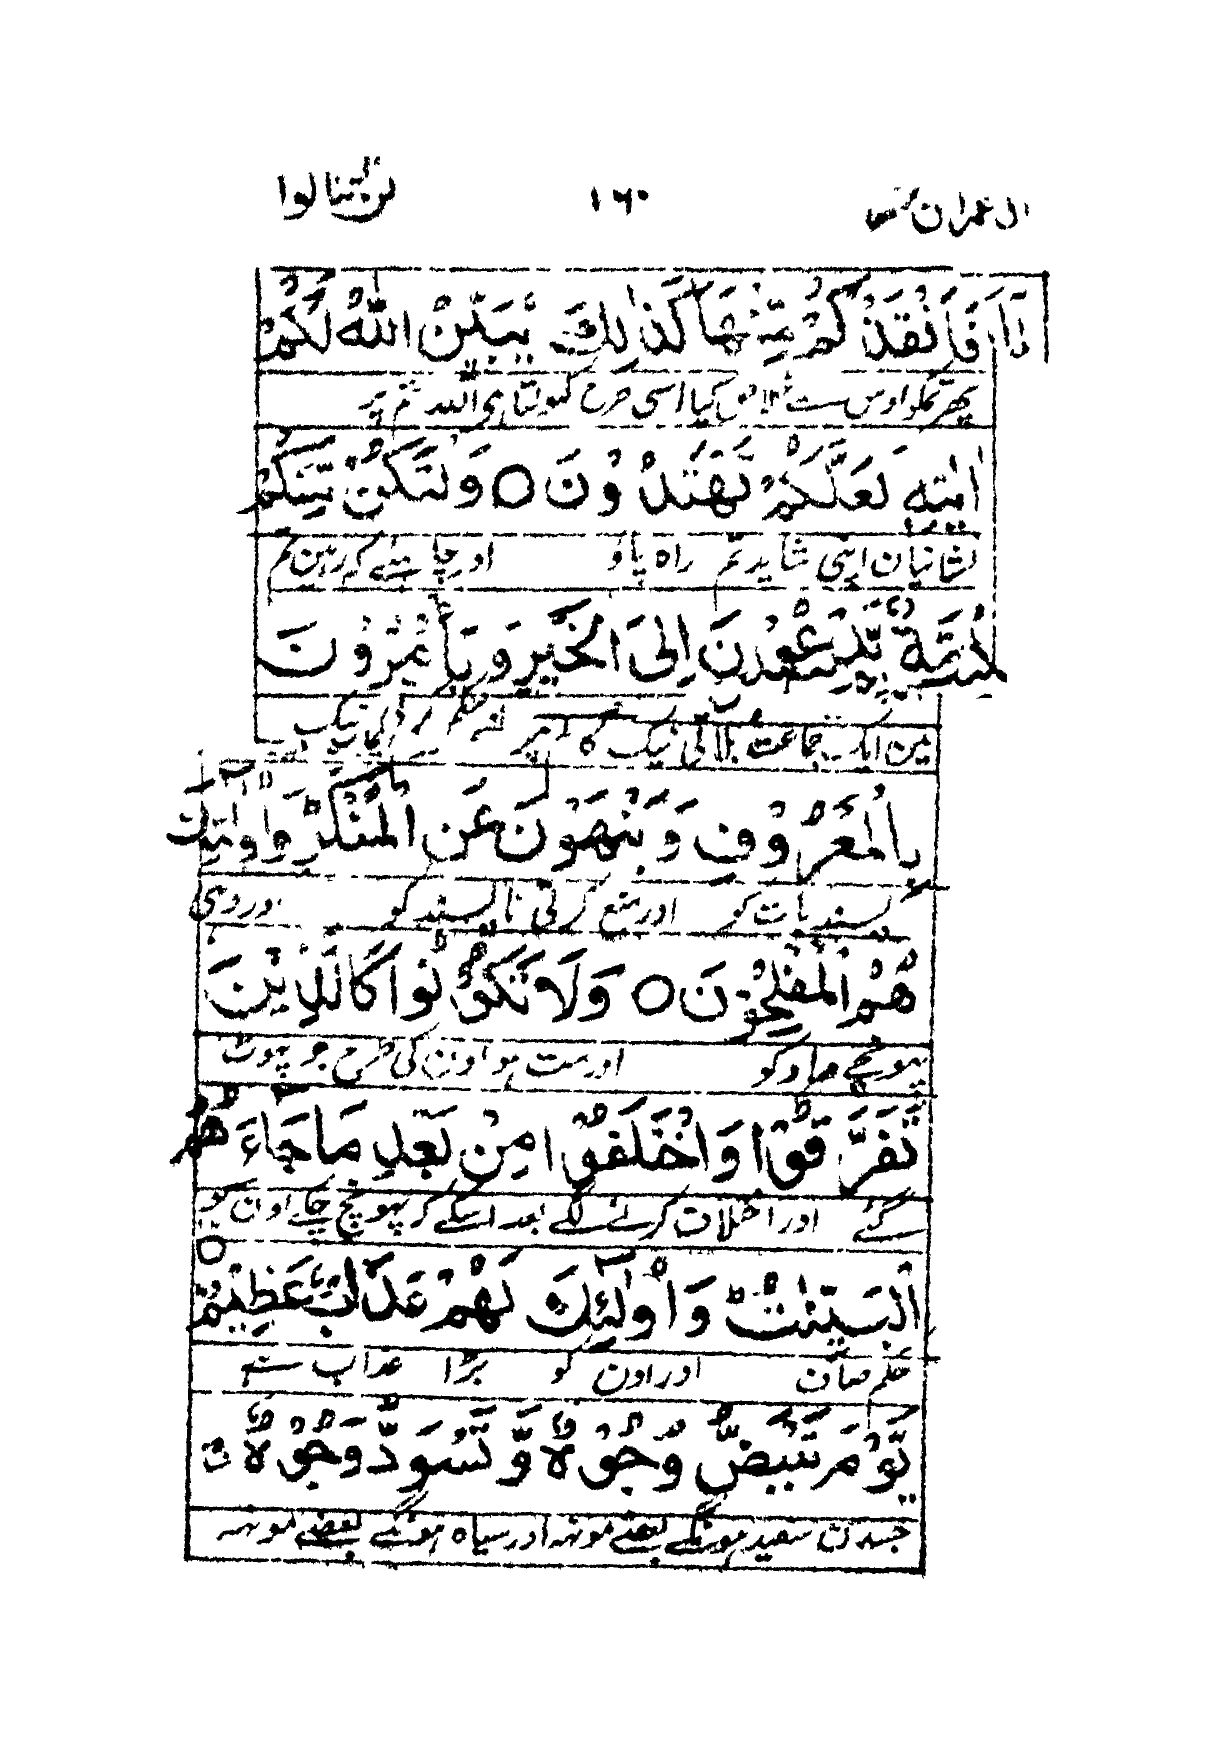 اٰل عمران ۳ ۱۶۰ لن تنالوا
فَاَنْقَذَكُمْ مِّنْهَا كَذٰلِكَ يُبَيِّنُ اللّٰهُ لَكُمْ
پھر تمکو اوس سے خلاص کیا اسی طرح کھولتا ہی اللہ تم پر
اٰيٰتِهٖ لَعَلَّكُمْ تَهْتَدُوْنَ ○ وَلْتَكُنْ مِّنْكُمْ
نشانیان اپنی شاید تم راہ پاؤ اور چاہئے کہ رہین تم
اُمَّةٌ يَّدْعُوْنَ اِلَى الْخَيْرِ وَيَاْمُرُوْنَ
مین ایک جماعت بلاتی نیک کام پر
بِالْمَعْرُوْفِ وَيَنْهَوْنَ عَنِ الْمُنْكَرِ ؕ وَاُولٰٓئِكَ
پسند بات کو اور منع کرتی ناپسند کو اور وہی
هُمُ الْمُفْلِحُوْنَ ○ وَلَا تَكُوْنُوْا كَالَّذِيْنَ
پہونچے مراد کو اور مت ہو اون کی طرح جو پھوٹ
تَفَرَّقُوْا وَاخْتَلَفُوْا مِنْۢ بَعْدِ مَا جَآءَهُمُ
گئے اور اختلاف کرنے لگے بعد اسکے کہ پہونچ چکے اون کو
الْبَيِّنٰتُ ؕ وَاُولٰٓئِكَ لَهُمْ عَذَابٌ عَظِيْمٌ ○
حکم صاف اور اون کو بڑا عذاب ہے
يَّوْمَ تَبْيَضُّ وُجُوْهٌ وَّتَسْوَدُّ وُجُوْهٌ ۚ
جسدن سفید ہونگے بعضے مونہہ اور سیاہ ہونگے بعضے مونہہ